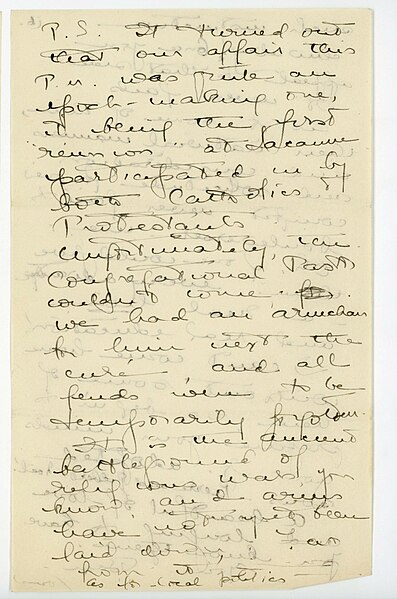 P.S. It turned out
that our affair this
P.M. was quite an
epoch-making one,
it being the first
"reunion" at Lacaune
participated in by
both Catholics &
Protestants
Unfortunately, the
Congregational Past.
couldn't come
we had an armchair
for him next the
curé and all
feuds were to be
temporarily forgotten.
It is the ancient
battleground of
religious wars you
know and arms
have not yet been
laid down, far
from it
as for local politics -